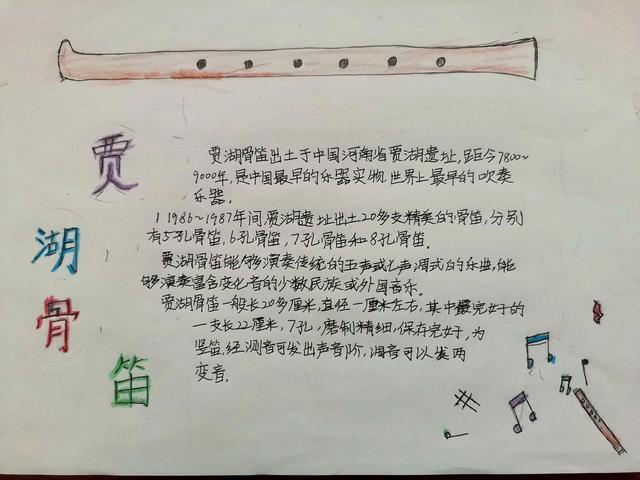 贾
湖
骨
笛
贾湖骨笛出土于中国河南省贾湖遗址,距今7800~
9000年,是中国最早的乐器实物,世界上最早的吹奏
乐器。
1986~1987年间,贾湖遗址出土20多支精美的骨笛,分别
有5孔骨笛,6孔骨笛,7孔骨笛和8孔骨笛。
贾湖骨笛能够演奏传统的五声或七声调式的乐曲,能
够演奏富含变化音的少数民族或外国音乐。
贾湖骨笛一般长20多厘米,直径一厘米左右,其中最完好的
一支长22厘米,7孔,磨制精细,保存完好,为
竖笛,经测音可发出声音阶,闰音可以发两
变音。